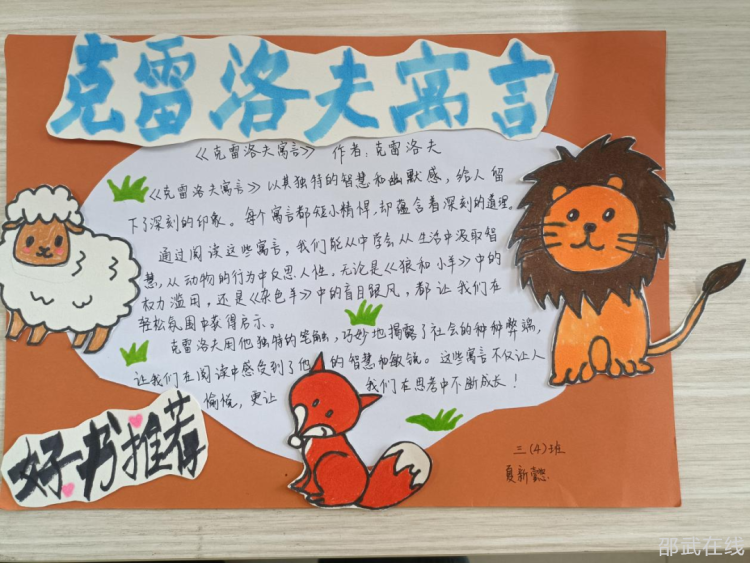 克雷洛夫寓言
《克雷洛夫寓言》 作者：克雷洛夫
《克雷洛夫寓言》以其独特的智慧和幽默感，给人留
下了深刻的印象。每个寓言都短小精悍，却蕴含着深刻的道理。
通过阅读这些寓言，我们能从中学会从生活中汲取智
慧，从动物的行为中反思人性。无论是《狼和小羊》中的
权力滥用，还是《杂色羊》中的盲目跟风，都让我们在
轻松氛围中获得启示。
克雷洛夫用他独特的笔触，巧妙地揭露了社会的种种弊端，
让我们在阅读中感受到了他的智慧和敏锐。这些寓言不仅让人
愉悦，更让我们在思考中不断成长！
好书推荐
三（4）班
夏新
邵武在线